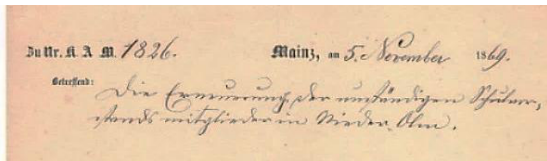 Zu Nr. K. A. M. 1826. Mainz, am 5. November 1869.
Betreffend:
Die Ernennung der unständigen Schulvor-
stands mitglieder in Nieder-Olm.